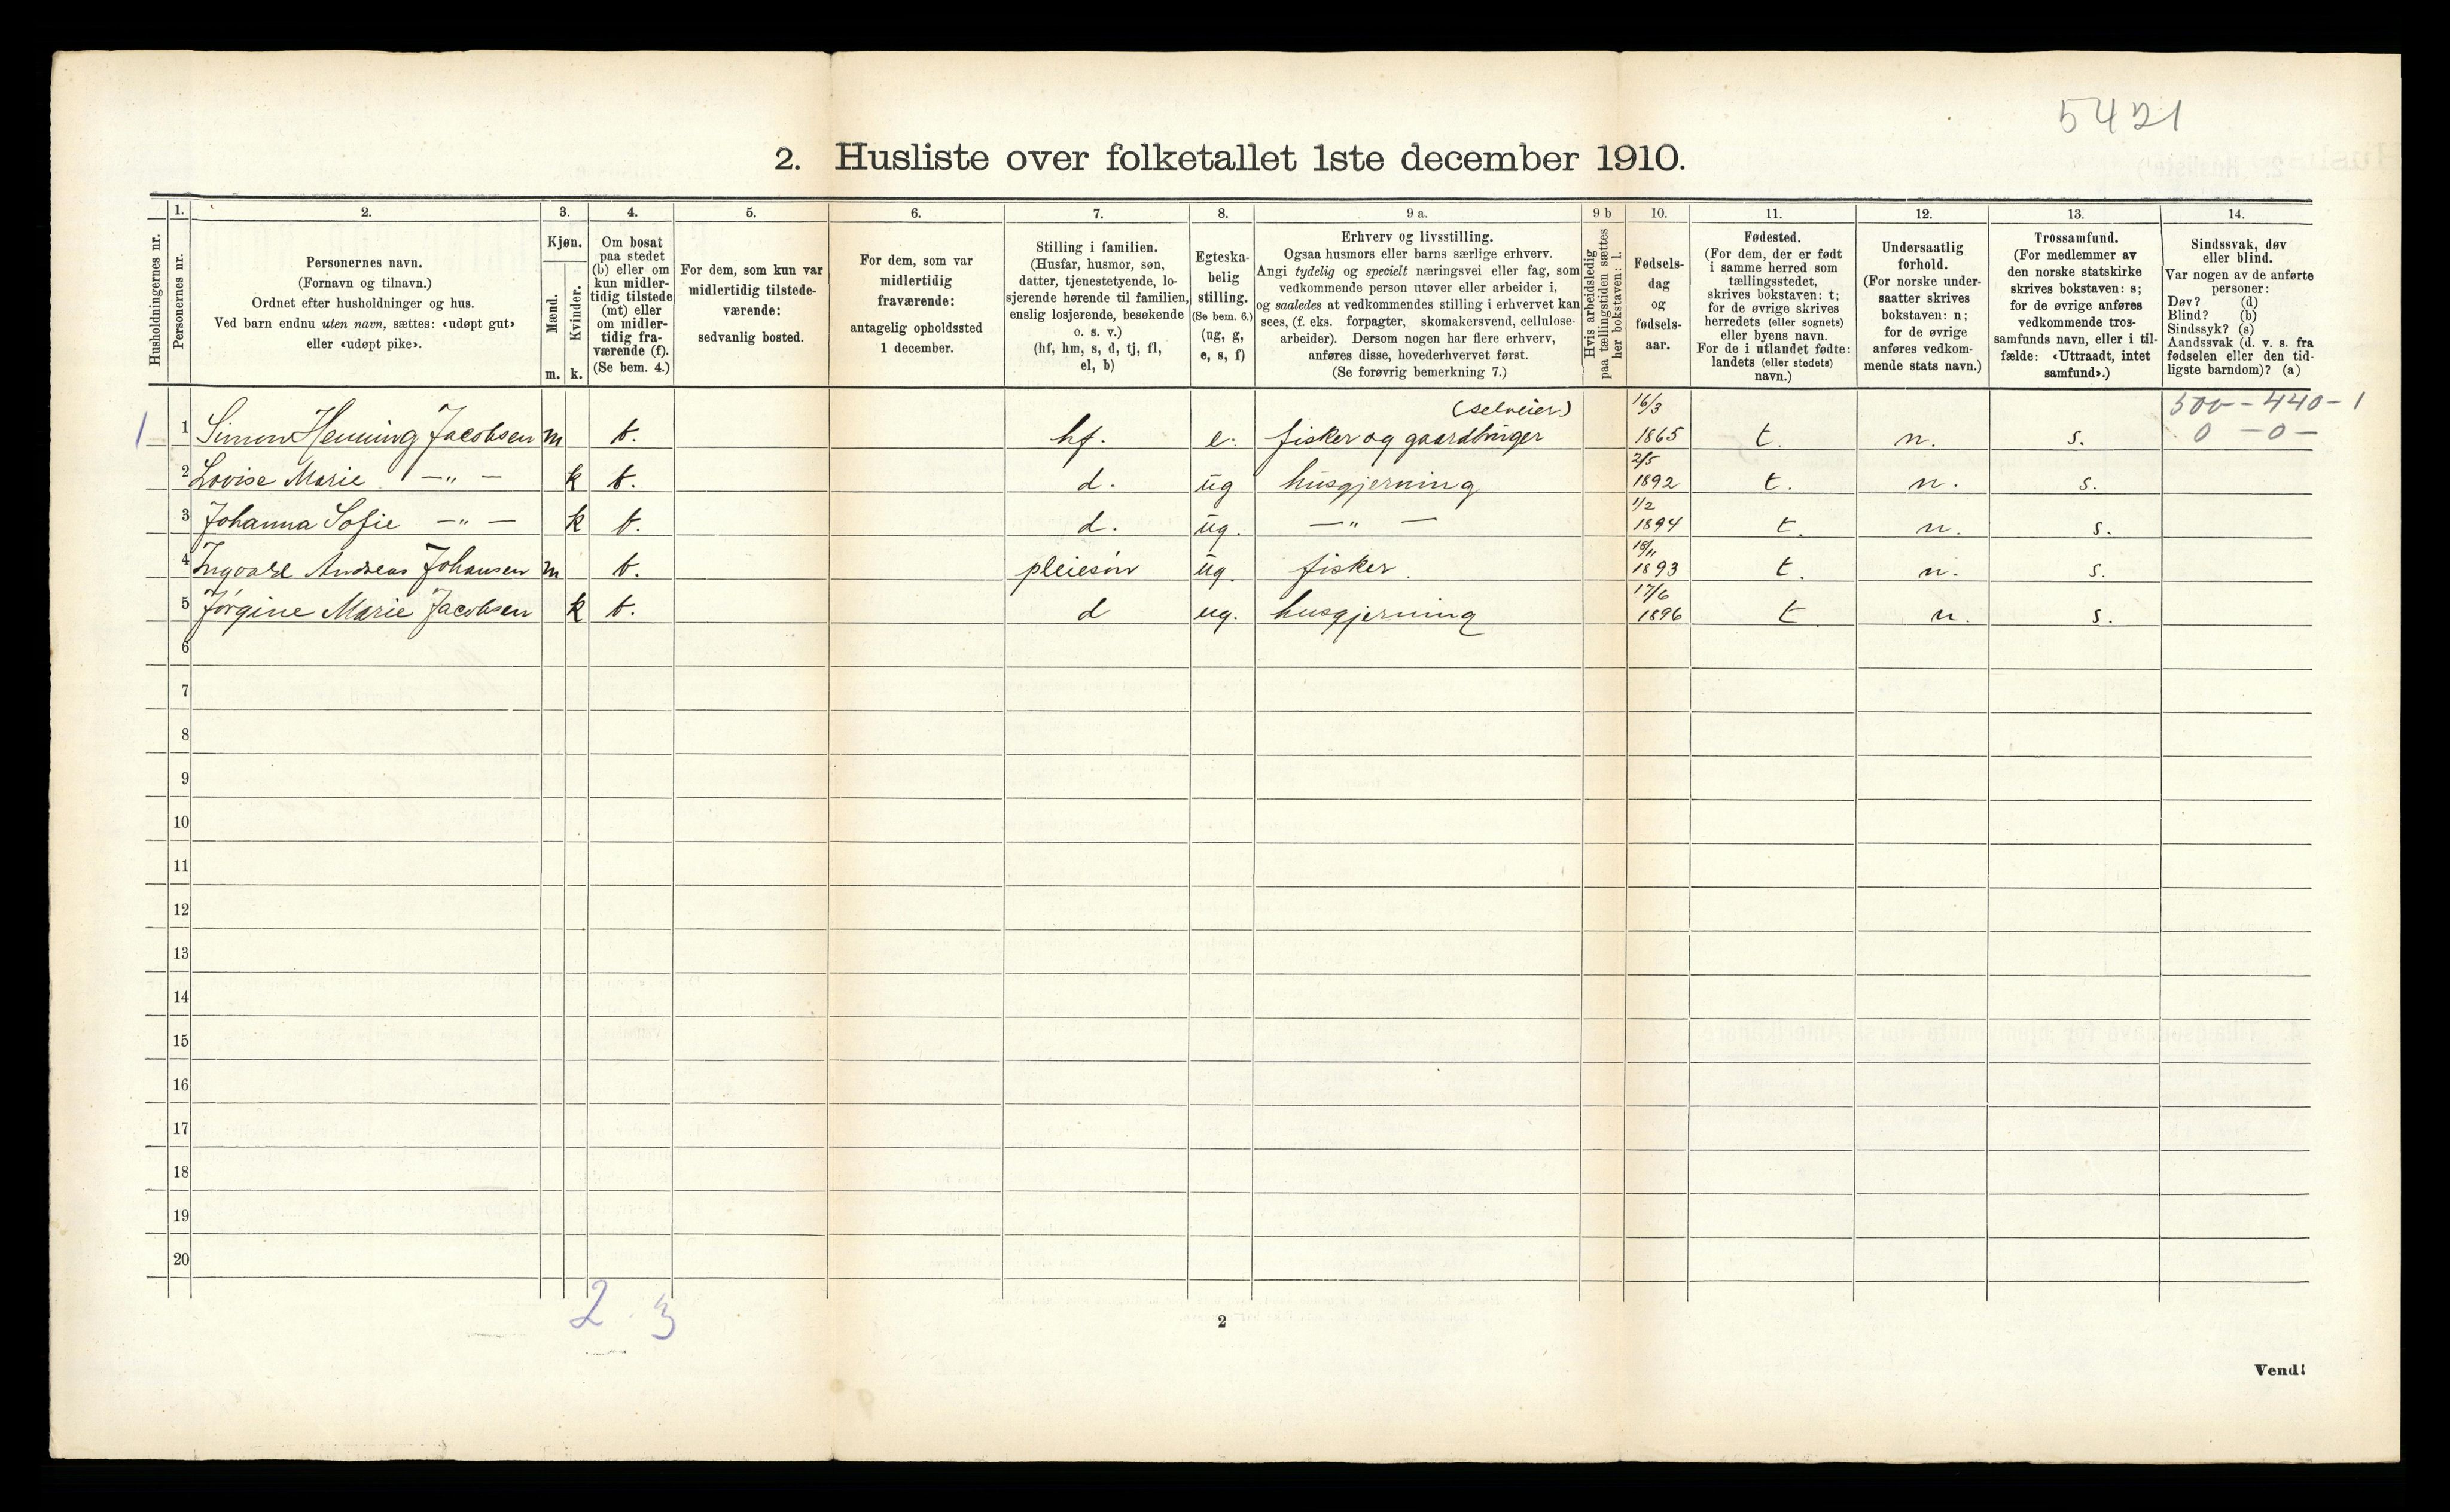 5421
2. Husliste over folketallet 1ste december 1910.
Husholdningernes nr.
1.
Personernes nr.
2.
Personernes navn.
(Fornavn og tilnavn.)
Ordnet efter husholdninger og hus.
Ved barn endnu uten navn, sættes: «udøpt gut»
eller «udøpt pike».
3.
Kjøn.
Mænd.
Kvinder.
m. k.
4.
Om bosat
paa stedet
(b) eller om
kun midler-
tidig tilstede
(mt) eller
om midler-
tidig fra-
værende (f).
(Se bem. 4.)
5.
For dem, som kun var
midlertidig tilstede-
værende:
sedvanlig bosted.
6.
For dem, som var
midlertidig
fraværende:
antagelig opholdssted
1 december.
7.
Stilling i familien.
(Husfar, husmor, søn,
datter, tjenestetyende, lo-
sjerende hørende til familien,
enslig losjerende, besøkende
o. s. v.)
(hf, hm, s, d, tj, fl,
el, b)
8.
Egteska-
belig
stilling.
(Se bem. 6.)
(ug, g,
e, s, f)
9 a.
Erhverv og livsstilling.
Ogsaa husmors eller barns særlige erhverv.
Angi tydelig og specielt næringsvei eller fag, som
vedkommende person utøver eller arbeider i,
og saaledes at vedkommendes stilling i erhvervet kan
sees, (f. eks. forpagter, skomakersvend, cellulose-
arbeider). Dersom nogen har flere erhverv,
anføres disse, hovederhvervet først.
(Se forøvrig bemerkning 7.)
9 b
Hvis arbeidsledig
paa tællingstiden sættes
her bokstaven: l.
10.
Fødsels-
dag
og
fødsels-
aar.
11.
Fødested.
(For dem, der er født
i samme herred som
tællingsstedet,
skrives bokstaven: t;
for de øvrige skrives
herredets (eller sognets)
eller byens navn.
For de i utlandet fødte:
landets (eller stedets)
navn.)
12.
Undersaatlig
forhold.
(For norske under-
saatter skrives
bokstaven: n;
for de øvrige
anføres vedkom-
mende stats navn.)
13.
Trossamfund.
(For medlemmer av
den norske statskirke
skrives bokstaven: s;
for de øvrige anføres
vedkommende tros-
samfunds navn, eller i til-
fælde: «Uttraadt, intet
samfund».)
14.
Sindssvak, døv
eller blind.
Var nogen av de anførte
personer:
Døv? (d)
Blind? (b)
Sindssyk? (s)
Aandssvak (d. v. s. fra
fødselen eller den tid-
ligste barndom)? (a)
(selveier) 16/3 500-440-1
1 1 Simon Henning Jacobsen m b. hf. e. fisker og gaardbruger 1865 t. n. s. 0 -0-
2/5
2 Lovise Marie —„— k b. d. ug husgjerning 1892 t. n. s.
1/2
3 Johanna Sofie —„— k b. d. ug. —„— 1894 t. n. s.
18/11
4 Ingvald Andreas Johansen m b. pleiesøn ug. fisker. 1893 t. n. s.
17/6
5 Jørgine Marie Jacobsen k b. d ug. husgjerning 1896 t. n. s.
6
7
8
9
10
11
12
13
14
15
16
17
18
19
20
2. 3
2
Vend!